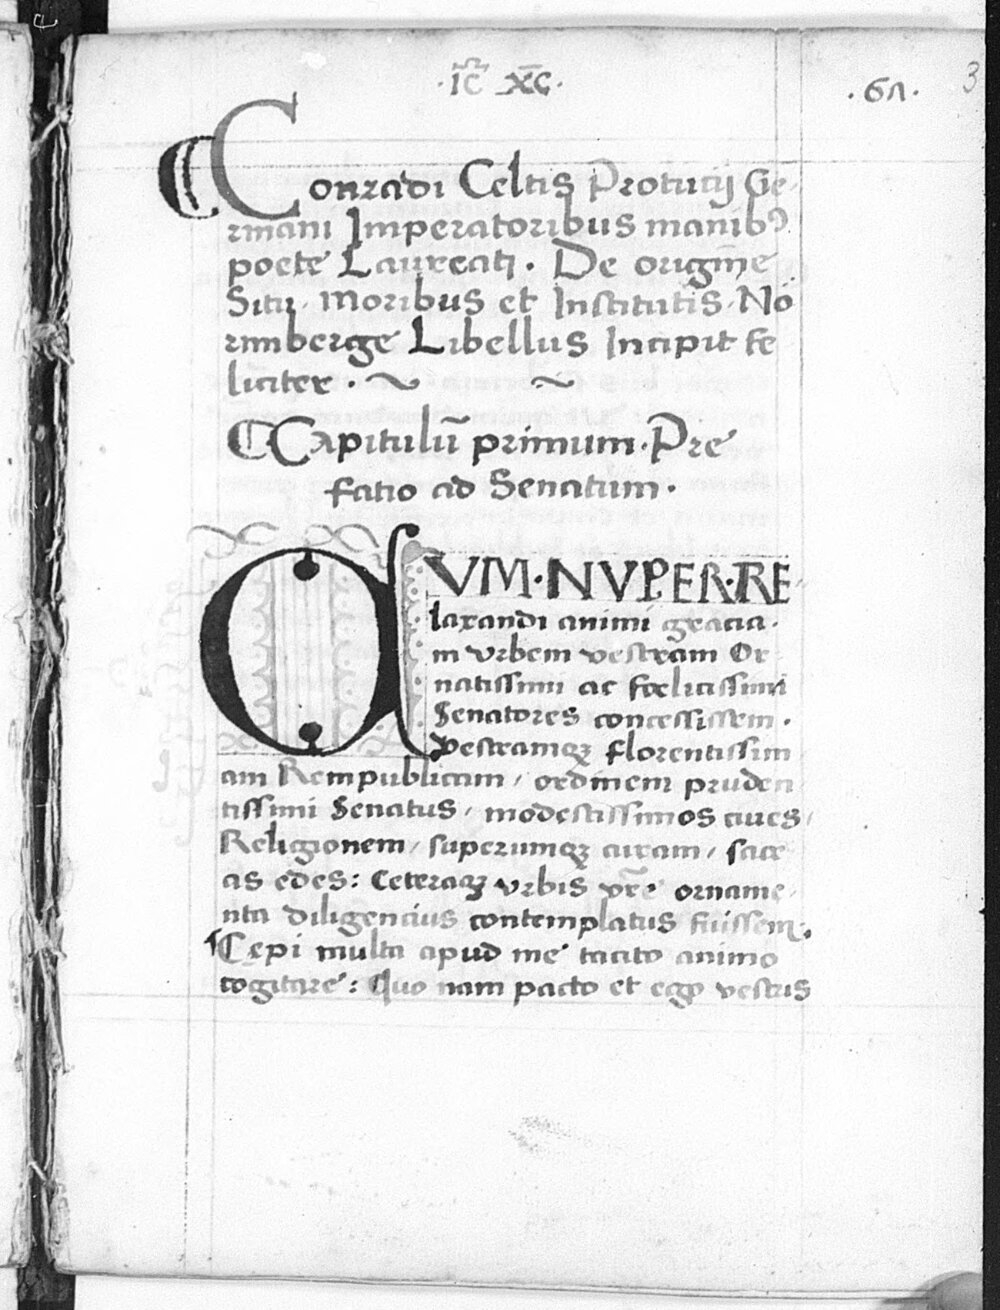 ·IC̅ XC̅·
·61· 3
Conradi Celtis Protucij Ge
rmani Imperatoribus manibꝰ
poete Laureati · De origine̅
Situ · moribus et Institutis · Nö
rmberge Libellus Incipit fe
liciter · ~ ~
Capitulu̅ primum · Pre
fatio ad Senatum ·
QVM · NVPER · RE
laxandi animi gracia ·
m vrbem vestram Or
natissimi ac fœlicissimi
Senatores concessissem ·
Vestramqꝫ florentissim
am Rempublicam / ordinem pruden
tissimi Senatus / modestissimos ciues /
Religionem / superumqꝫ curam / sacr
as edes : Ceteraqꝫ vrbis vr̅e orname
nta diligencius contemplatus fuissem ·
Cepi multa apud me tacito animo
cogitare : Quo nam pacto et ego vestris